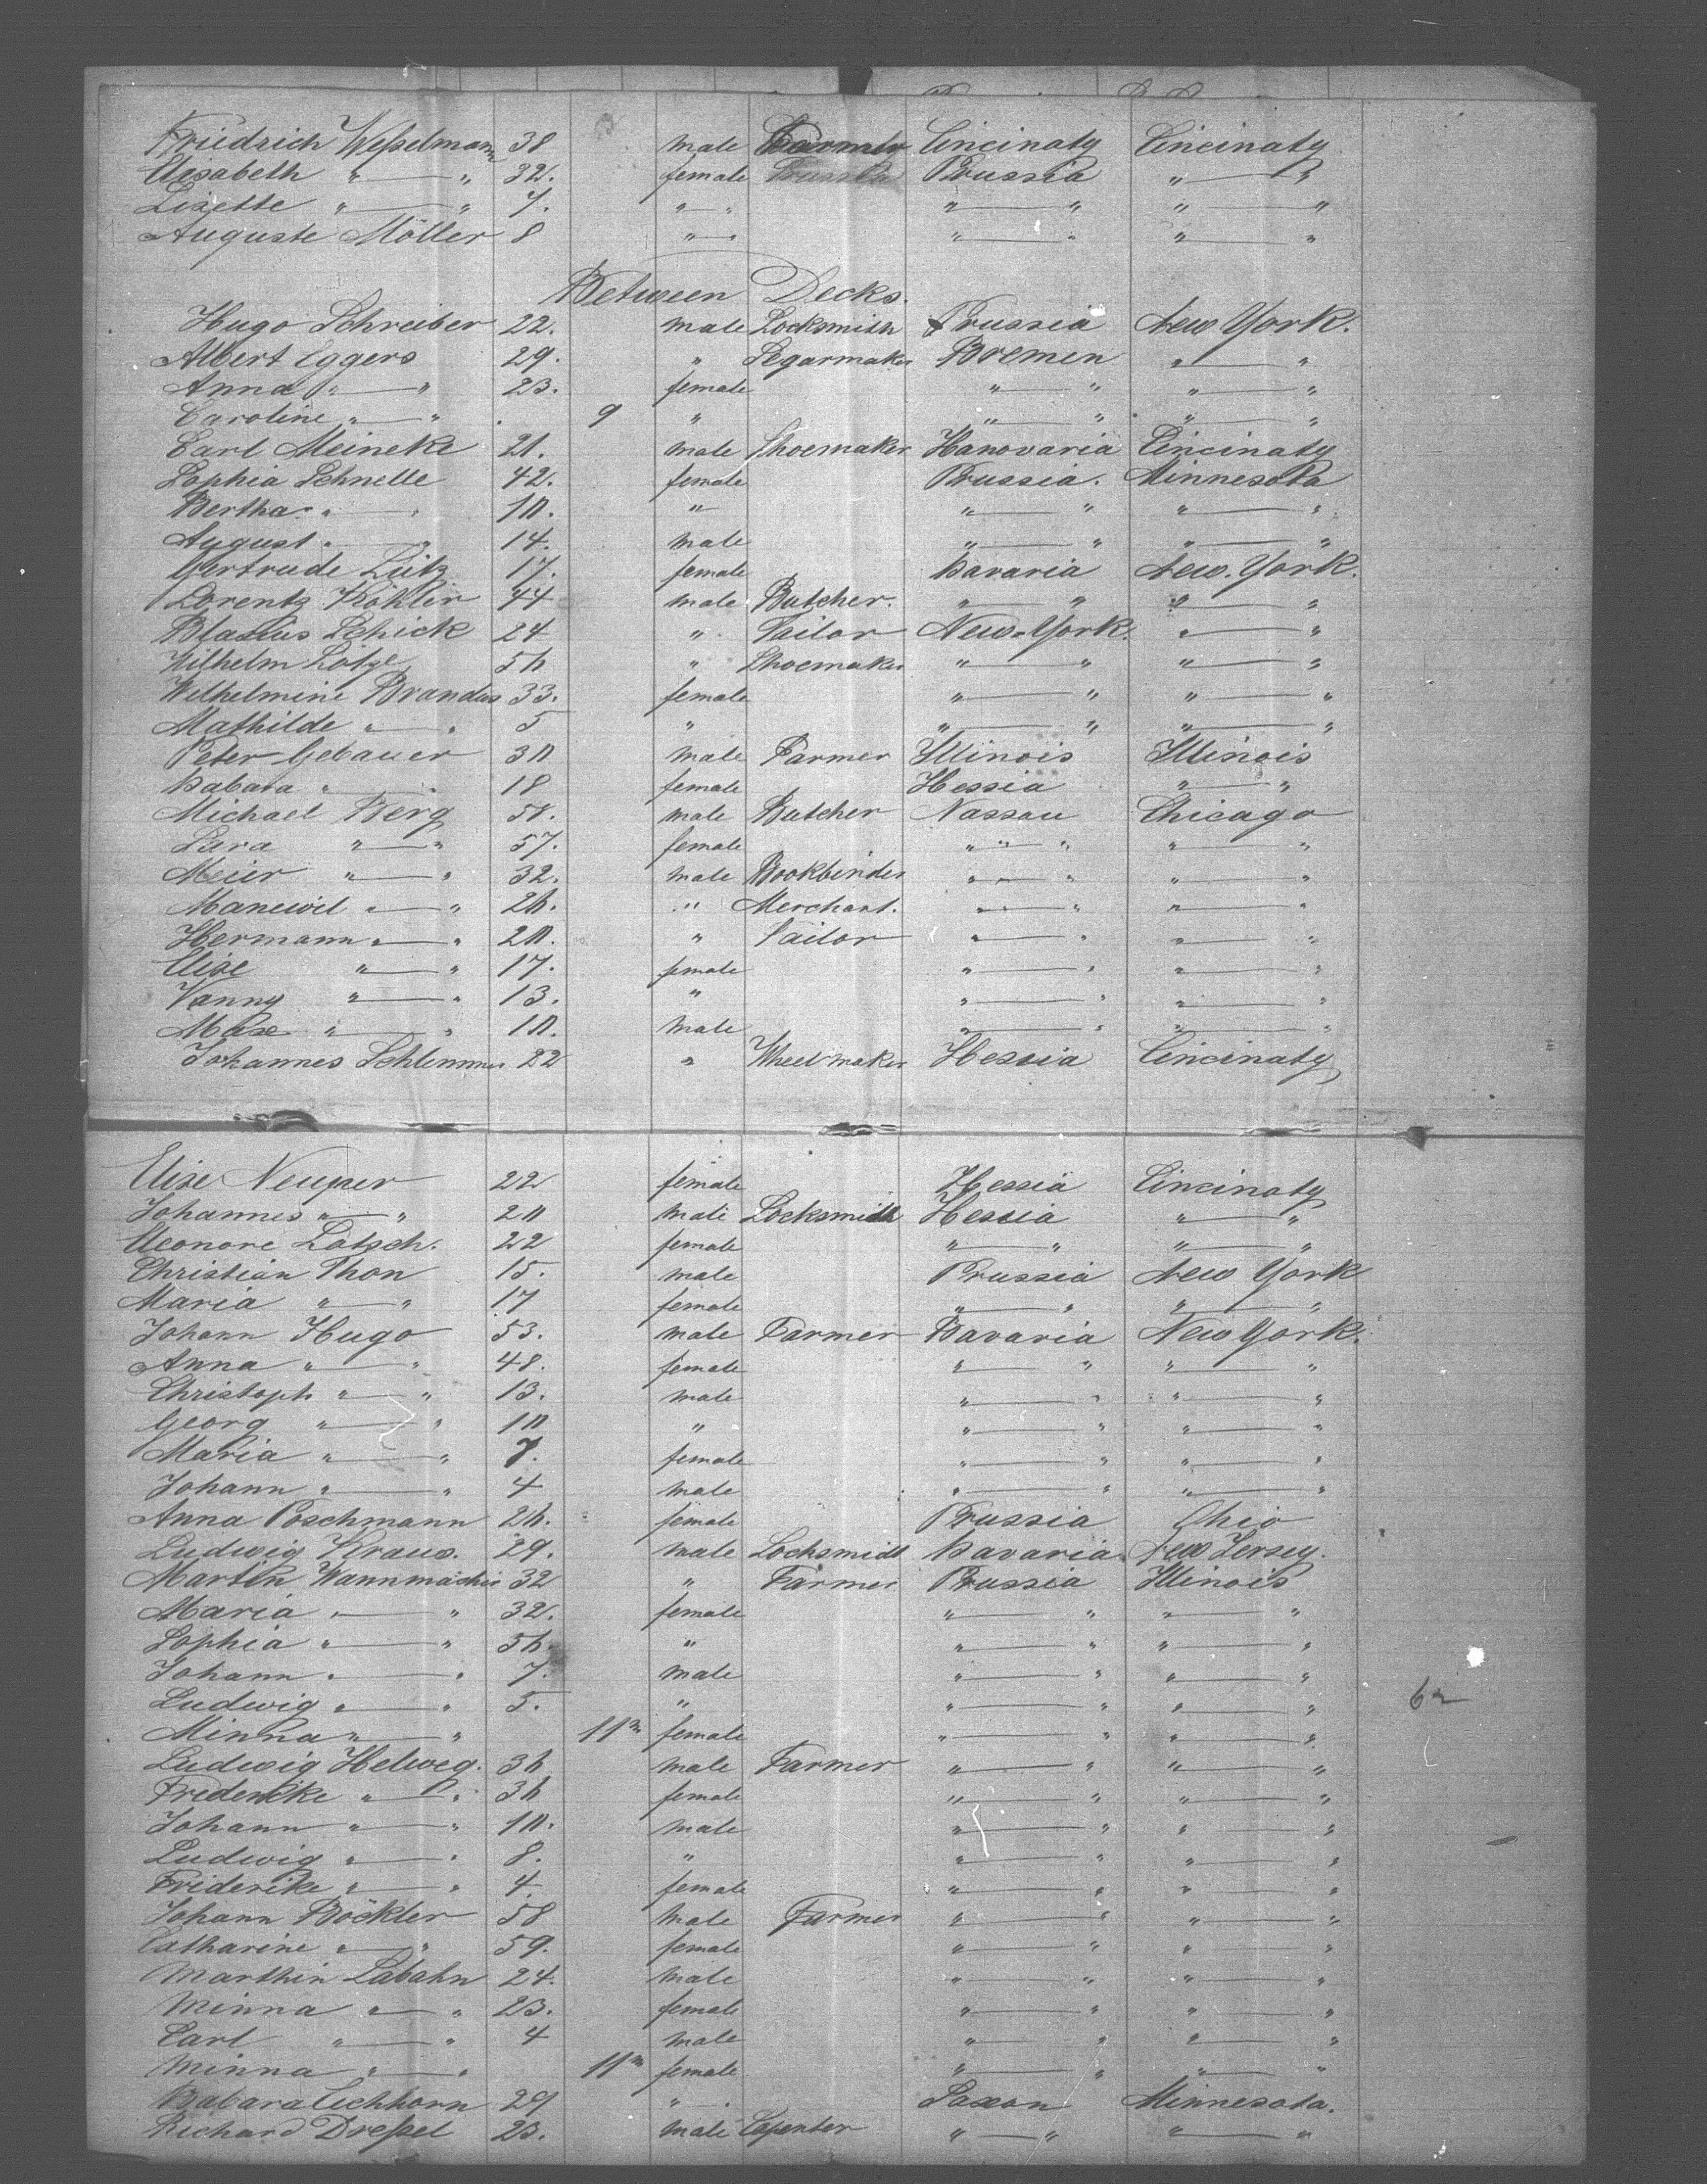 Friedrich Weßelmann 38 male Farmer Cincinaty Cincinaty
Elisabeth " — " 32. female Prussia " — "
Lisette " — " 7. " — " " — " " — "
Auguste Möller 8 " — " " — " " — "
Between Decks.
Hugo Schreiber 22. male Locksmith Prussia New York.
Albert Eggers 29. " Segarmaker Bremen " — "
Anna " — " 23. female " — " " — "
Caroline " — " . 9 " " — " " — "
Carl Meineke 21. male Shoemaker Hanovaria Cincinaty
Sophia Schnelle 42. female Prussia. Minnesota
Bertha " — " 10. " — " — " " — "
August " — " 14. male " — " " — "
Gertrude Lutz 17. female Bavaria New York.
Lorentz Köhlir 44 male Butcher. " — " " — "
Blasius Schick 24 " Tailor New-York. " — "
Wilhelm Lötze 56 " Shoemaker " — " " — "
Wilhelmine Brandes 33. female " — " " — "
Mathilde " — " 5 " " — " " — "
Peter Gebauer 30 male Farmer Illinois Illinois
Babara " — " 18 female Hessia " — "
Michael Berg 58. male Butcher Nassau Chicago
Sara " — " 57. female " — " " — "
Meier " — " 32. male Bookbinder " — " " — "
Manewil " — " 26. " Merchant. " — " " — "
Hermann " — " 20. " Tailor " — " " — "
Elise " — " 17. female " — " " — "
Vanny " — " 13. " " — " " — "
Max " — " 10. male " — " " — "
Johannes Schlemmer 22 " Wheelmaker Hessia Cincinaty
Elise Neuper 22 female Hessia Cincinaty
Johannes " — " 20 male Locksmidh Hessia " — "
Eleonore Lotsch. 22 female " — " " — "
Christian Thon 15. male Prussia New York
Maria " — " 17 female " — " " — "
Johann Hugo 53. male Farmer Bavaria New York.
Anna " — " 48. female " — " " — "
Christoph " — " 13. male " — " " — "
Georg " — " 10 " " — " " — "
Maria " — " 7. female " — " " — "
Johann " — " 4 male " — " " — "
Anna Poschmann 26. female Prussia Ohio
Ludwig Kraus. 29. male Locksmidt Bavaria New Jersey.
Martin Wannmacher 32 " Farmer Prussia Illinois
Maria " — " 32. female " — " " — "
Sophia " — " 56. " " — " " — "
Johann " — " 7. male " — " " — "
Ludwig " — " 5. " " — " " — "
Minna " — " 11m female " — " " — "
Ludwig Helweg. 36 male Farmer " — " " — "
Frederike " — " 36 female " — " " — "
Johann " — " 10. male " — " " — "
Ludwig " — " 8. " " — " " — "
Friderike " — " 4 female " — " " — "
Johann Böckler 58 male Farmer " — " " — "
Catharine " — " 59. female " — " " — "
Marthin Labahn 24. male " — " " — "
Minna " — " 23. female " — " " — "
Carl " — " 4 male " — " " — "
Minna " — " 11m female " — " " — "
Babara Eichhorn 29 " — Saxon Minnesota.
Richard Dreßel 23. male Capenter " — " " — "